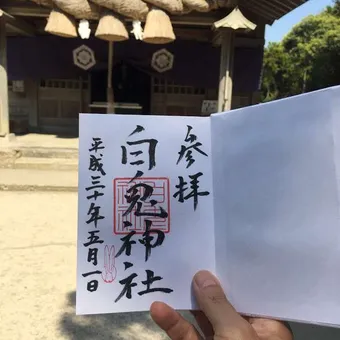 参拝
白兎神社
平成三十年五月一日